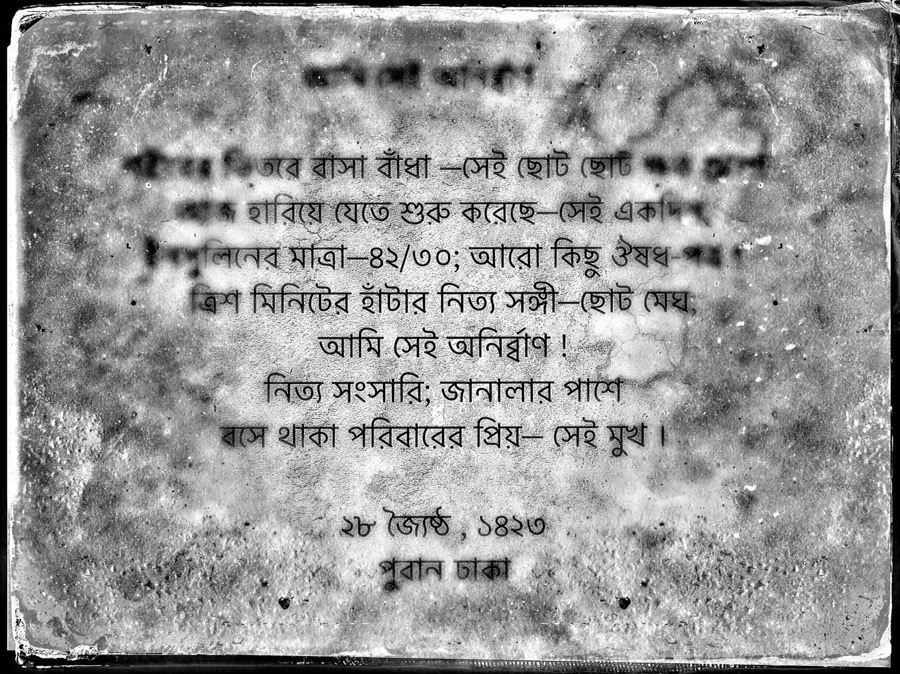 আমি সেই অনির্ব্বাণ
ভিতরে বাসা বাঁধা —সেই ছোট ছোট
আজ হারিয়ে যেতে শুরু করেছে—সেই একদিন
ইনসুলিনের মাত্রা—৪২/৩০; আরো কিছু ঔষধ-পত্র ।
ত্রিশ মিনিটের হাঁটার নিত্য সঙ্গী—ছোট মেঘ;
আমি সেই অনির্ব্বাণ !
নিত্য সংসারি; জানালার পাশে
বসে থাকা পরিবারের প্রিয়— সেই মুখ ।
২৮ জ্যৈষ্ঠ , ১৪২৩
পুরান ঢাকা